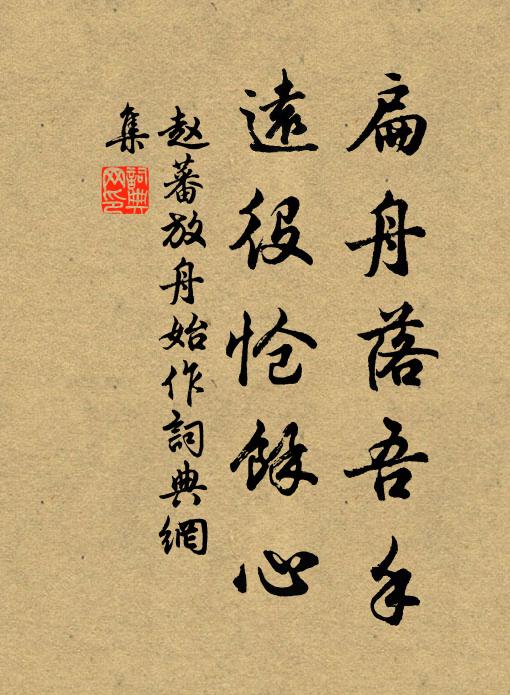 扁舟落吾手
遠役愴餘心
赵蕃放舟始作詞典網
集
詞典
网印